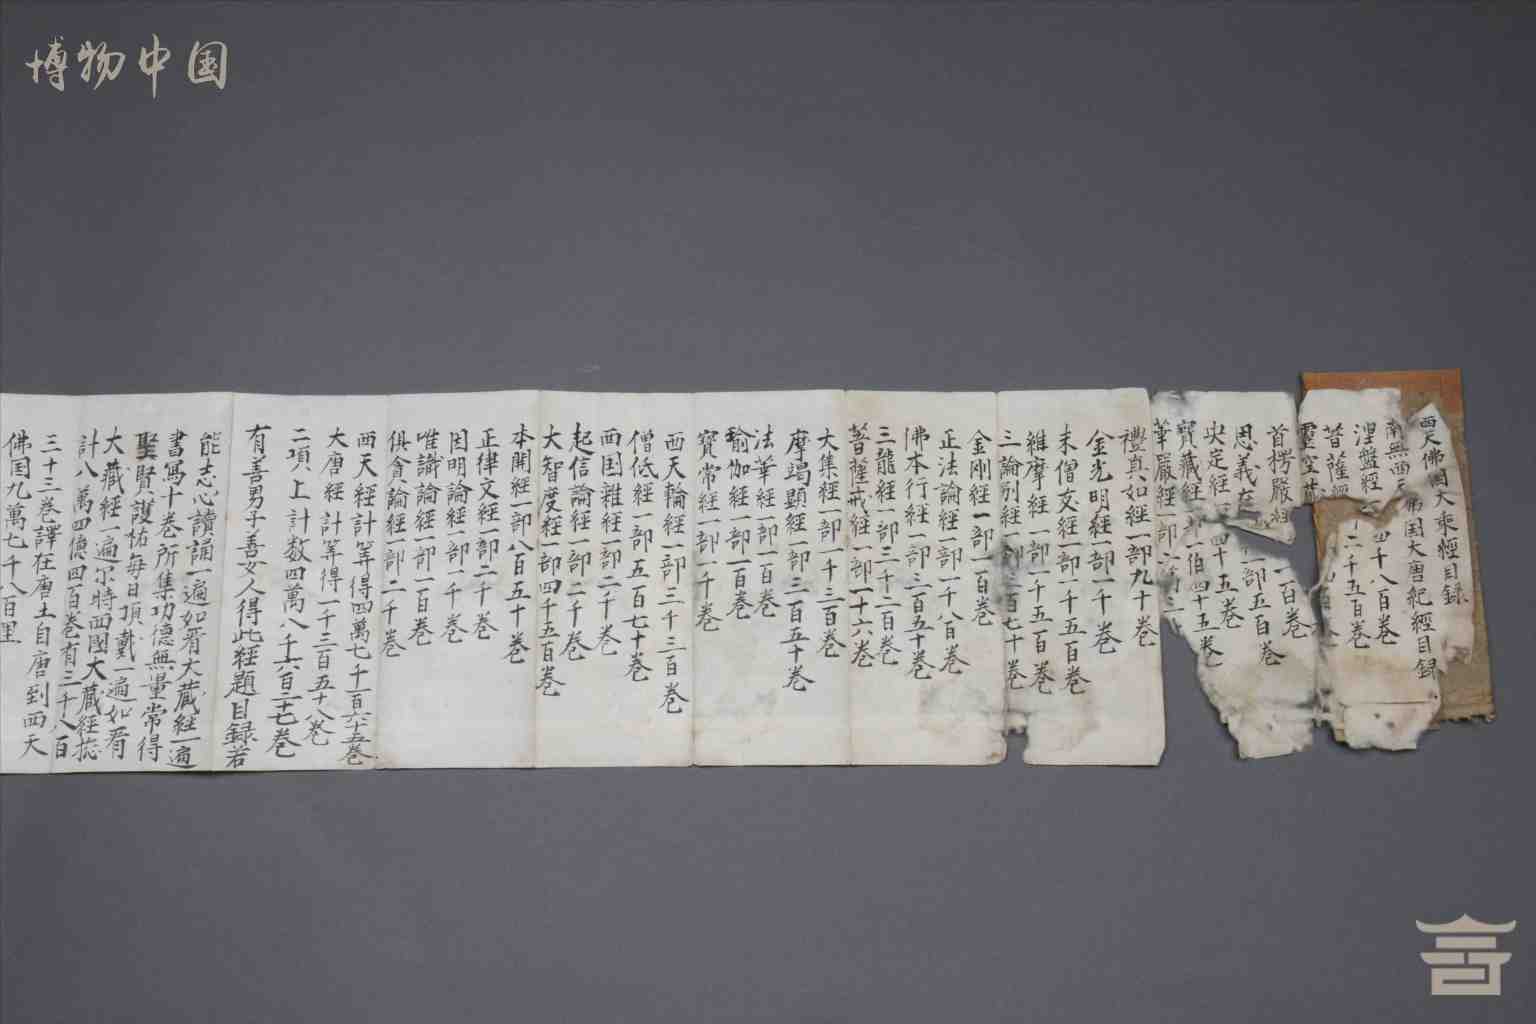 博物中国
西天佛國大乘經目録
南無西天佛国大唐紀經目録
涅盤經 四千八百卷
菩薩經 二千五百卷
靈空藏
首楞嚴經 一百卷
恩義在 一部五百卷
决定經 四十五卷
寳藏經一部一伯四十五卷
華嚴經一部
禮真如經一部九十卷
金光明經一部一千卷
未僧亥經一部一千五百卷
維摩經一部一千五百卷
三論別經一部二百七十卷
金剛經一部一百卷
正法論經一部一千八百卷
佛本行經一部三百五十卷
三龍經一部三十二百卷
菩薩戒經一部一十六卷
大集經一部一千三百卷
摩竭顯經一部三百五十卷
法華經一部一百卷
瑜伽經一部一百卷
寳常經一部一千卷
西天輪經一部三千三百卷
僧低經一部五百七十卷
西国雜經一部二千卷
起信論經一部二千卷
大智度經一部四千五百卷
本開經一部八百五十卷
正律文經一部二千卷
因明論經一部一千卷
唯識論經一部一百卷
俱貪論經一部二千卷
西天經計算得四萬七千一百六十五卷
大唐經計算得一千三百五十八卷
二項上計数四萬八千六百二十七卷
有善男子善女人得此經題目録若
能志心讀誦一遍如看大藏經一遍
書寫十卷所集功德無量常得
聖賢護祐每日頂戴一遍如看
大藏經一遍尔時西國大藏經揔
計八萬四億四百卷有三千八百
三十三卷譯在唐土自唐到西天
佛国九萬七千八百里